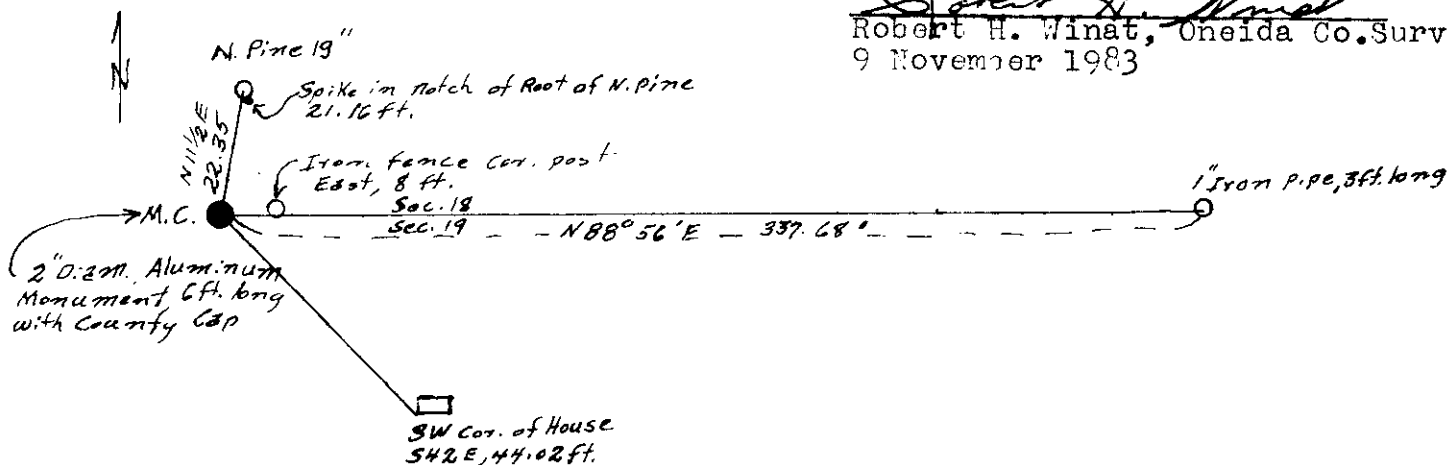 Robert H. Winat, Oneida Co.Surv
9 November 1983
N
N. Pine 19"
Spike in notch of Root of N. Pine
21.16 ft.
N 11 1/2 E
22.35
Iron fence cor. post
East, 8 ft.
1" Iron pipe, 3ft. long
M.C.
Sec. 18
Sec. 19
N 88° 56' E 337.68'
2" Diam. Aluminum
Monument, 6 ft. long
with County Cap
SW Cor. of House
S42E, 44.02 ft.